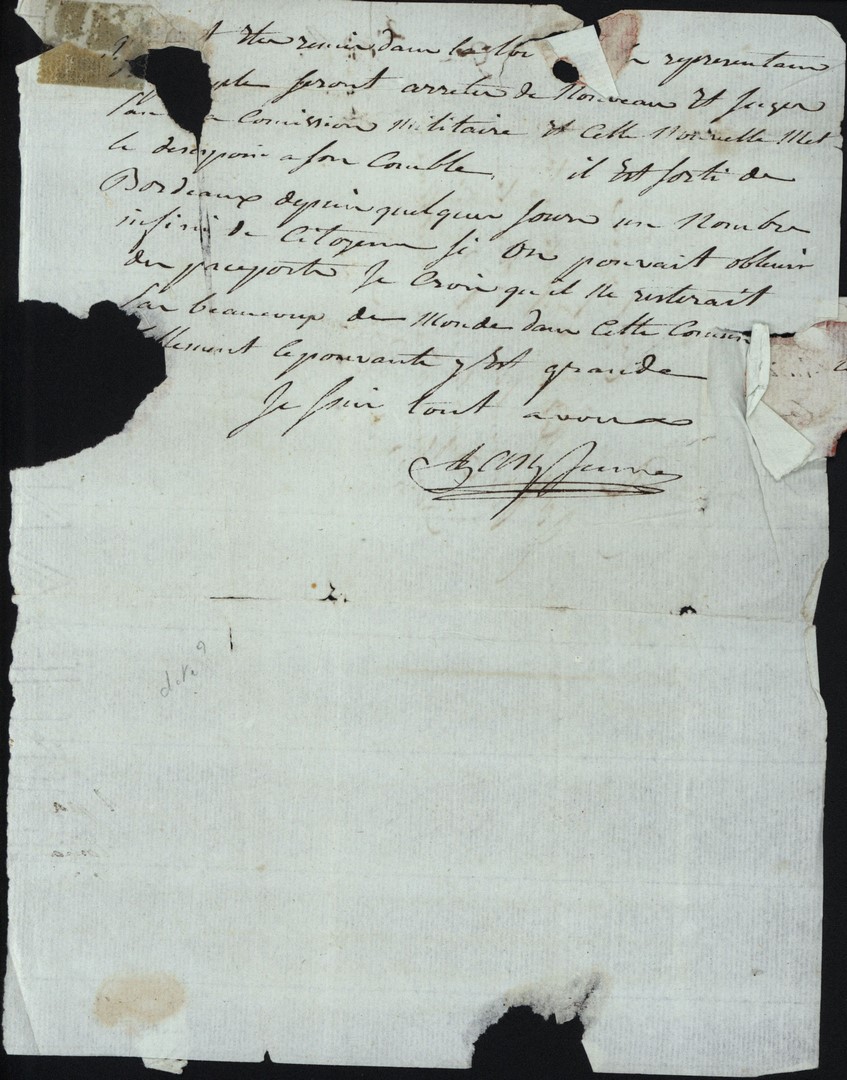 Etes remis dans la representans
seront arreter de Nouveau Et Juger
Comission Militaire Et Cette Nouvelle Met
le desespoir a son Comble. il Est sorti de
Bordeaux depuis quelques Jours un Nombre
infini de Citoyens si On pouvait obtenir
des passeports Je Crois qu'il Ne resterait
pas beaucoup de Monde dans Cette Comun
llement lepouvante y Est grande
Je suis tout a vous
Jeune
2.
date?